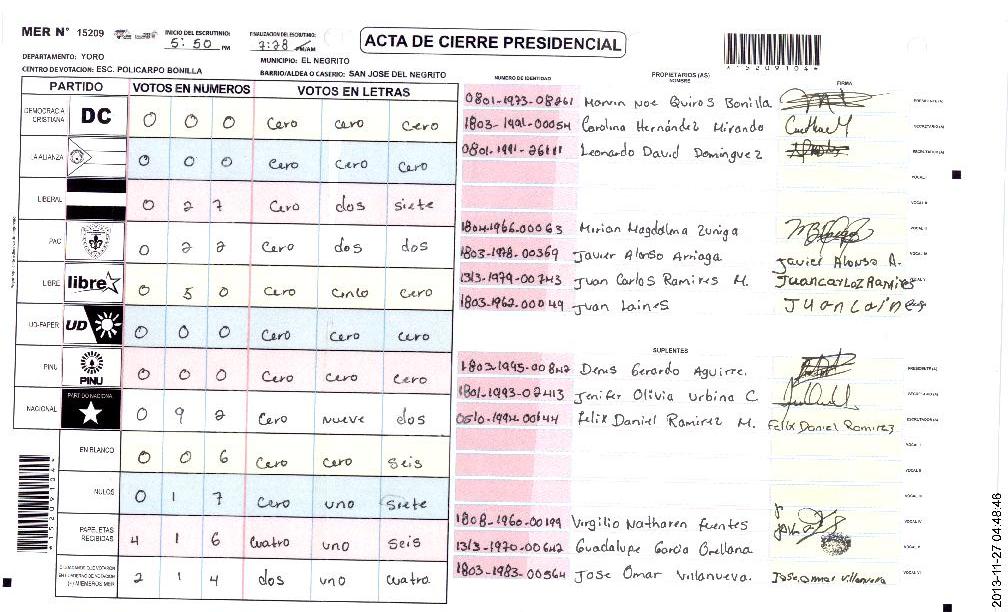 MER N° 15209
INICIO DEL ESCRUTINIO: 5:50 PM
FINALIZACION DEL ESCRUTINIO: 7:28 PM/AM
ACTA DE CIERRE PRESIDENCIAL
*15209104*
DEPARTAMENTO: YORO
MUNICIPIO: EL NEGRITO
CENTRO DE VOTACION: ESC. POLICARPO BONILLA
BARRIO/ALDEA O CASERIO: SAN JOSE DEL NEGRITO
PARTIDO VOTOS EN NUMEROS VOTOS EN LETRAS
DEMOCRACIA CRISTIANA DC 0 0 0 Cero cero cero
LA ALIANZA 0 0 0 Cero Cero Cero
LIBERAL 0 2 7 Cero dos siete
PAC 0 2 2 Cero dos dos
LIBRE libre 0 5 0 Cero cinco Cero
UD-FAPER UD 0 0 0 Cero Cero Cero
PINU PINU 0 0 0 Cero Cero cero
NACIONAL PARTIDO NACIONAL 0 9 2 Cero nueve dos
EN BLANCO 0 0 6 Cero Cero Seis
NULOS 0 1 7 Cero uno siete
PAPELETAS RECIBIDAS 4 1 6 Cuatro uno seis
CIUDADANOS QUE VOTARON EN CUADERNO DE VOTACION (+) MIEMBROS MER 2 1 4 dos uno Cuatro
NUMERO DE IDENTIDAD PROPIETARIOS (AS) NOMBRE FIRMA
0801-1973-08261 Marvin Noe Quiros Bonilla PRESIDENTE(A)
1803-1991-00054 Carolina Hernández Mirando SECRETARIO(A)
0801-1991-26111 Leonardo David Dominguez ESCRUTADOR(A)
VOCAL I
VOCAL II
1804-1966-00063 Mirian Magdalena Zuniga VOCAL III
1803-1978-00369 Javier Alonso Arriaga Javier Alonso A. VOCAL IV
1313-1979-00743 Juan Carlos Ramires M. Juan carLoz Ramires VOCAL V
1803-1962-00049 Juan Laines Juan Laines
SUPLENTES
1803-1995-00842 Denis Gerardo Aguirre. PRESIDENTE(A)
1801-1993-02413 Jenifer Olivia Urbina C SECRETARIO(A)
0510-1994-00644 Felix Daniel Ramirez M. Felix Daniel Ramirez ESCRUTADOR(A)
VOCAL I
VOCAL II
VOCAL III
1808-1960-00199 Virgilio Natharen fuentes VOCAL IV
1313-1970-00642 Guadalupe Garcia Orellana VOCAL V
1803-1983-00564 Jose Omar Villanueva. Jose omar villanueva VOCAL VI
*15209104*
2013-11-27 04:48:46